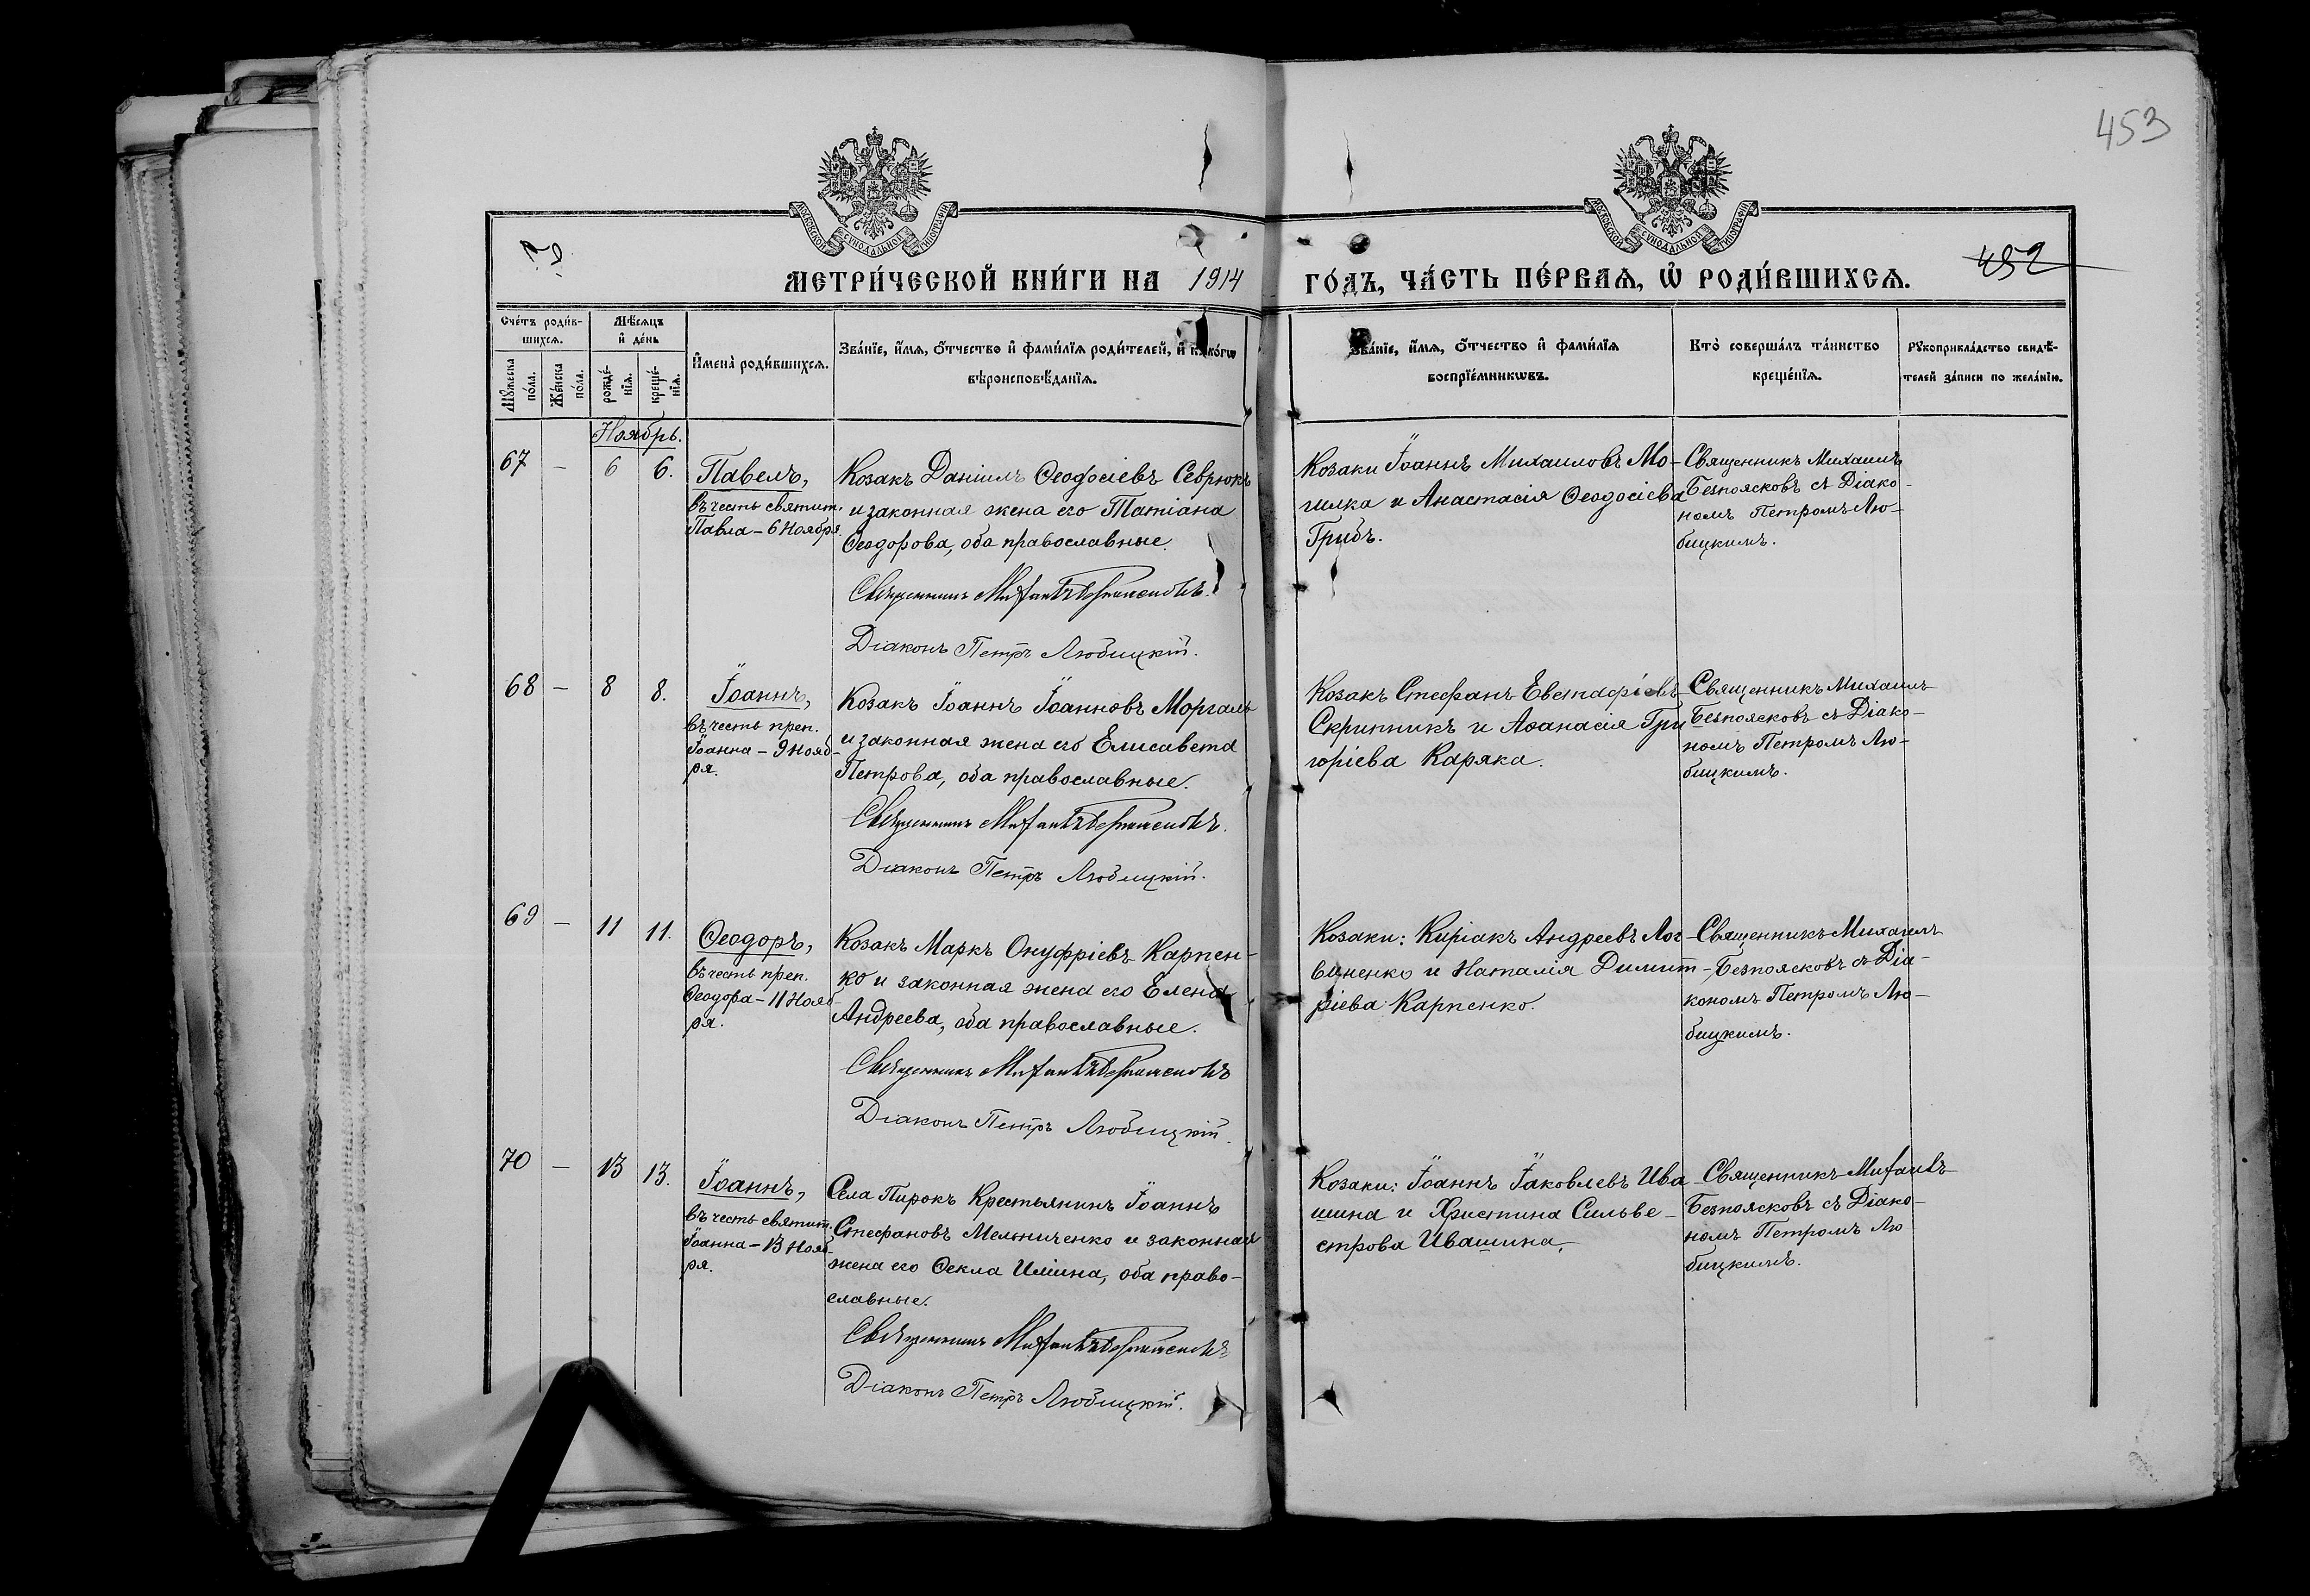 453
МОСКОВСКОЙ СѴНОДАЛЬНОЙ ТИПОГРАФІИ
МОСКОВСКОЙ СѴНОДАЛЬНОЙ ТИПОГРАФІИ
452
МЕТРИ́ЧЕСКОЙ КНИ́ГИ НА 1914 ГО́ДЪ, ЧА́СТЬ ПЕ́РВАѦ, Ѡ҆ РОДИ́ВШИХСѦ.
Сче́тъ роди́в-
шихсѧ.
Мꙋ́жеска по́ла.
Же́нска по́ла.
Мѣ́сѧцъ
и҆ де́нь
рожде́-
нїѧ.
креще́-
нїѧ.
И҆мена̀ роди́вшихсѧ.
Зва́нїе, и҆́мѧ, ѻ҆́тчество и҆ фами́лїѧ роди́телей, и҆ како́гѡ
вѣроисповѣ́данїѧ.
Зва́нїе, и҆́мѧ, ѻ҆́тчество и҆ фами́лїѧ
воспрїе́мникѡвъ.
Кто̀ соверша́лъ та́инство
креще́нїѧ.
Рꙋкоприкла́дство свидѣ́-
телей за́писи по жела́нїю.
Ноябрь.
67 – 6 6.
Павелъ,
въ честь святит.
Павла – 6 Ноября.
Козакъ Даніилъ Ѳеодосіевъ Севрюкъ
и законная жена его Татіана
Ѳеодорова, оба православные.
Священникъ Михаилъ Безпоясковъ.
Діаконъ Петръ Любицкій.
Козаки Іоаннъ Михаиловъ Мо-
гилка и Анастасія Ѳеодосіева
Грибъ.
Священникъ Михаилъ
Безпоясковъ съ Діако-
номъ Петромъ Лю-
бицкимъ.
68 – 8 8.
Іоаннъ,
въ честь преп.
Іоанна – 9 Нояб-
ря.
Козакъ Іоаннъ Іоанновъ Моргаль
и законная жена его Елисавета
Петрова, оба православные.
Священникъ Михаилъ Безпоясковъ.
Діаконъ Петръ Любицкій.
Козакъ Стефанъ Евстафіевъ
Скрипникъ и Аѳанасія Гри
горіева Каряка.
Священникъ Михаилъ
Безпоясковъ съ Діако-
номъ Петромъ Лю-
бицкимъ.
69 – 11 11.
Ѳеодоръ,
въ честь преп.
Ѳеодора – 11 Нояб-
ря.
Козакъ Маркъ Онуфріевъ Карпен-
ко и законная жена его Елена
Андреева, оба православные.
Священникъ Михаилъ Безпоясковъ
Діаконъ Петръ Любицкій.
Козаки: Киріакъ Андреевъ Лог
виненко и Наталія Димит-
ріева Карпенко.
Священникъ Михаилъ
Безпоясковъ съ Діа-
кономъ Петромъ Лю-
бицкимъ.
70 – 13 13.
Іоаннъ,
въ честь святит.
Іоанна – 13 Нояб-
ря.
Села Пирокъ Крестьянинъ Іоаннъ
Стефановъ Мельниченко и законная
жена его Ѳекла Иліина, оба право-
славные.
Священникъ Михаилъ Безпоясковъ
Діаконъ Петръ Любицкій.
Козаки: Іоаннъ Іаковлевъ Ива
шина и Христина Сильве-
строва Ивашина.
Священникъ Михаилъ
Безпоясковъ съ Діако-
номъ Петромъ Лю
бицкимъ.